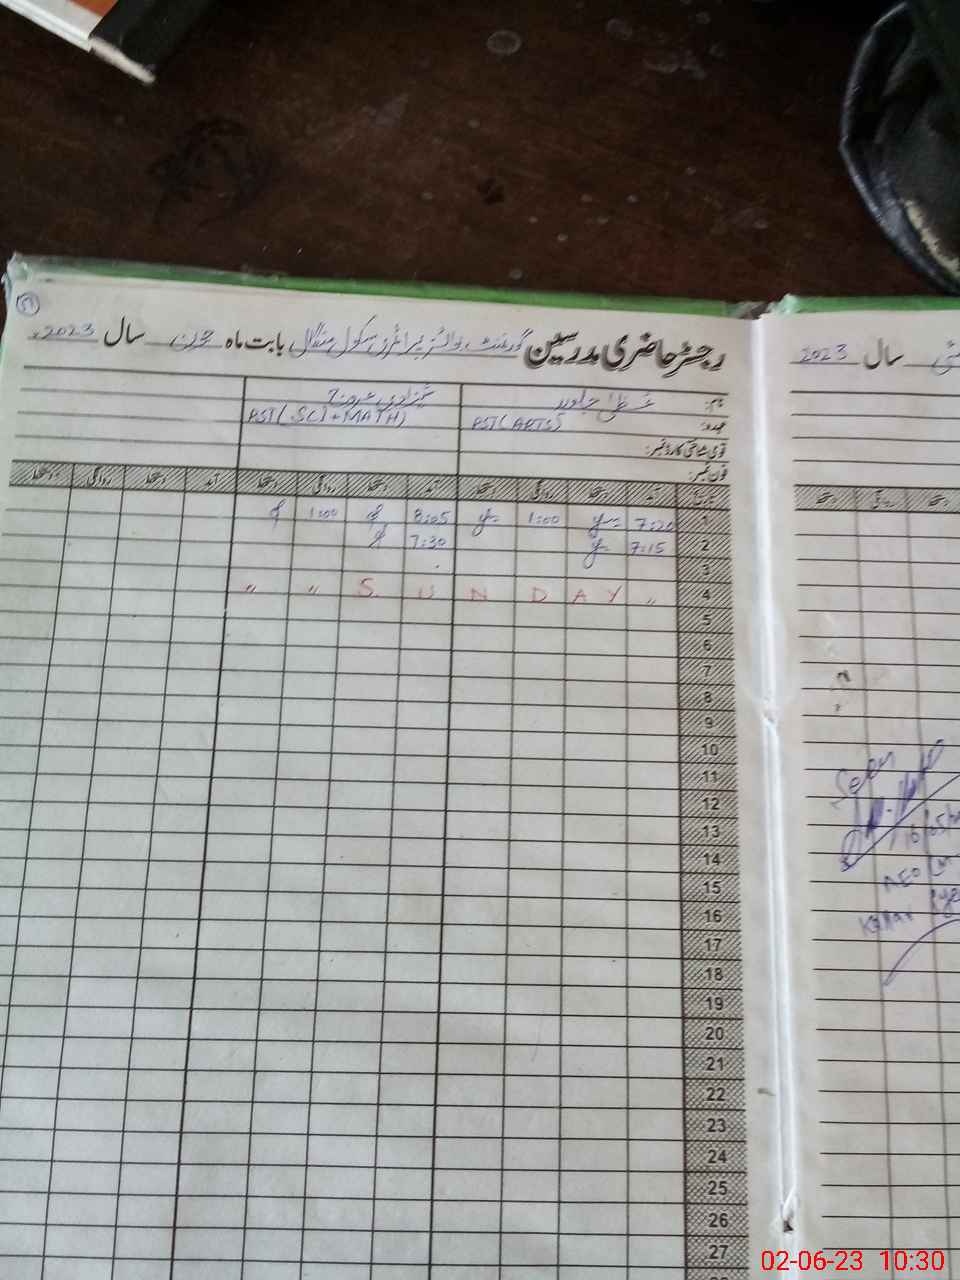 51
رجسٹر حاضری مدرسین گورنمنٹ گرلز پرائمری سکول منگال بابت ماہ جون سال 2023ء
نام: عظمیٰ جاوید شہزادی
عہدہ: PST (ARTS) PST (SCI+MATH)
قومی شناختی کارڈ نمبر:
فون نمبر:
تاریخ آمد دستخط روانگی دستخط آمد دستخط روانگی دستخط آمد دستخط روانگی دستخط
1 7:20 1:00 8:05 1:00
2 7:15 7:30
3
4 " S U N D A Y " "
5
6
7
8
9
10
11
12
13
14
15
16
17
18
19
20
21
22
23
24
25
26
27
مئی سال 2023
دستخط روانگی دستخط
Seen
16/05/
AEO
Kallar
02-06-23 10:30